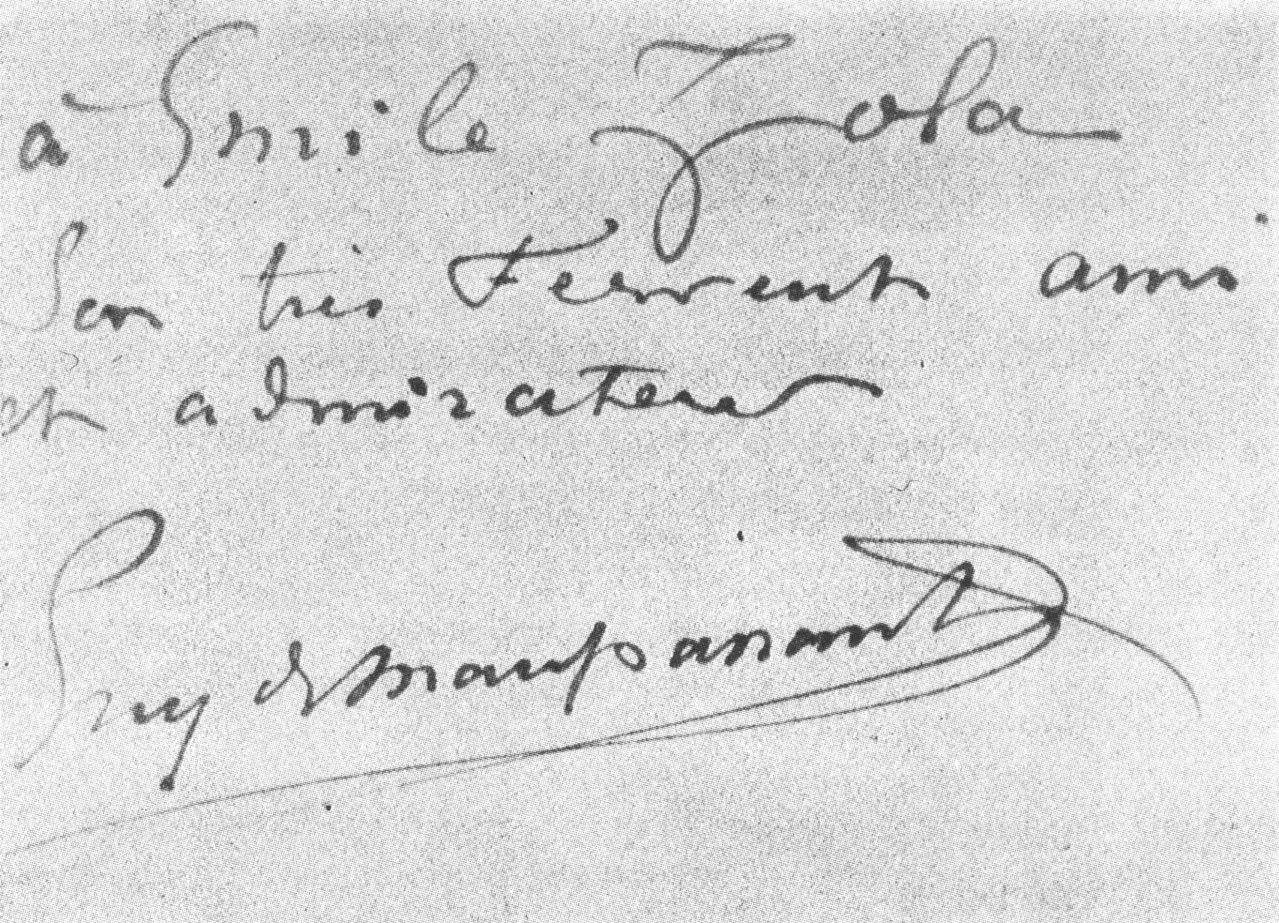 à Emile Zola
Son très Fervent ami
et admirateur
Guy de Maupassant